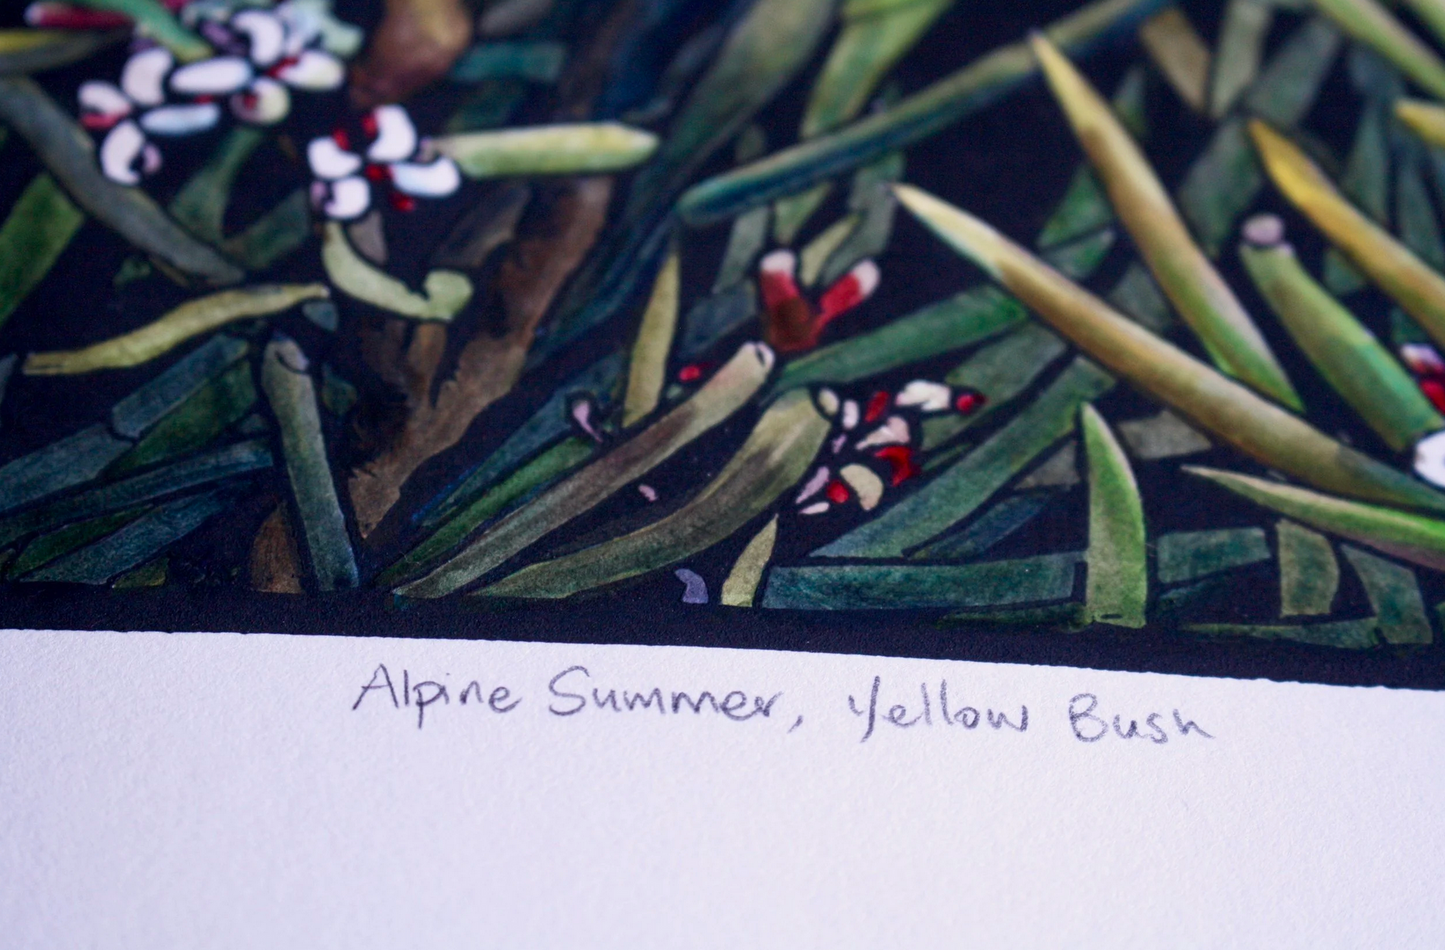 Alpine Summer, Yellow Bush